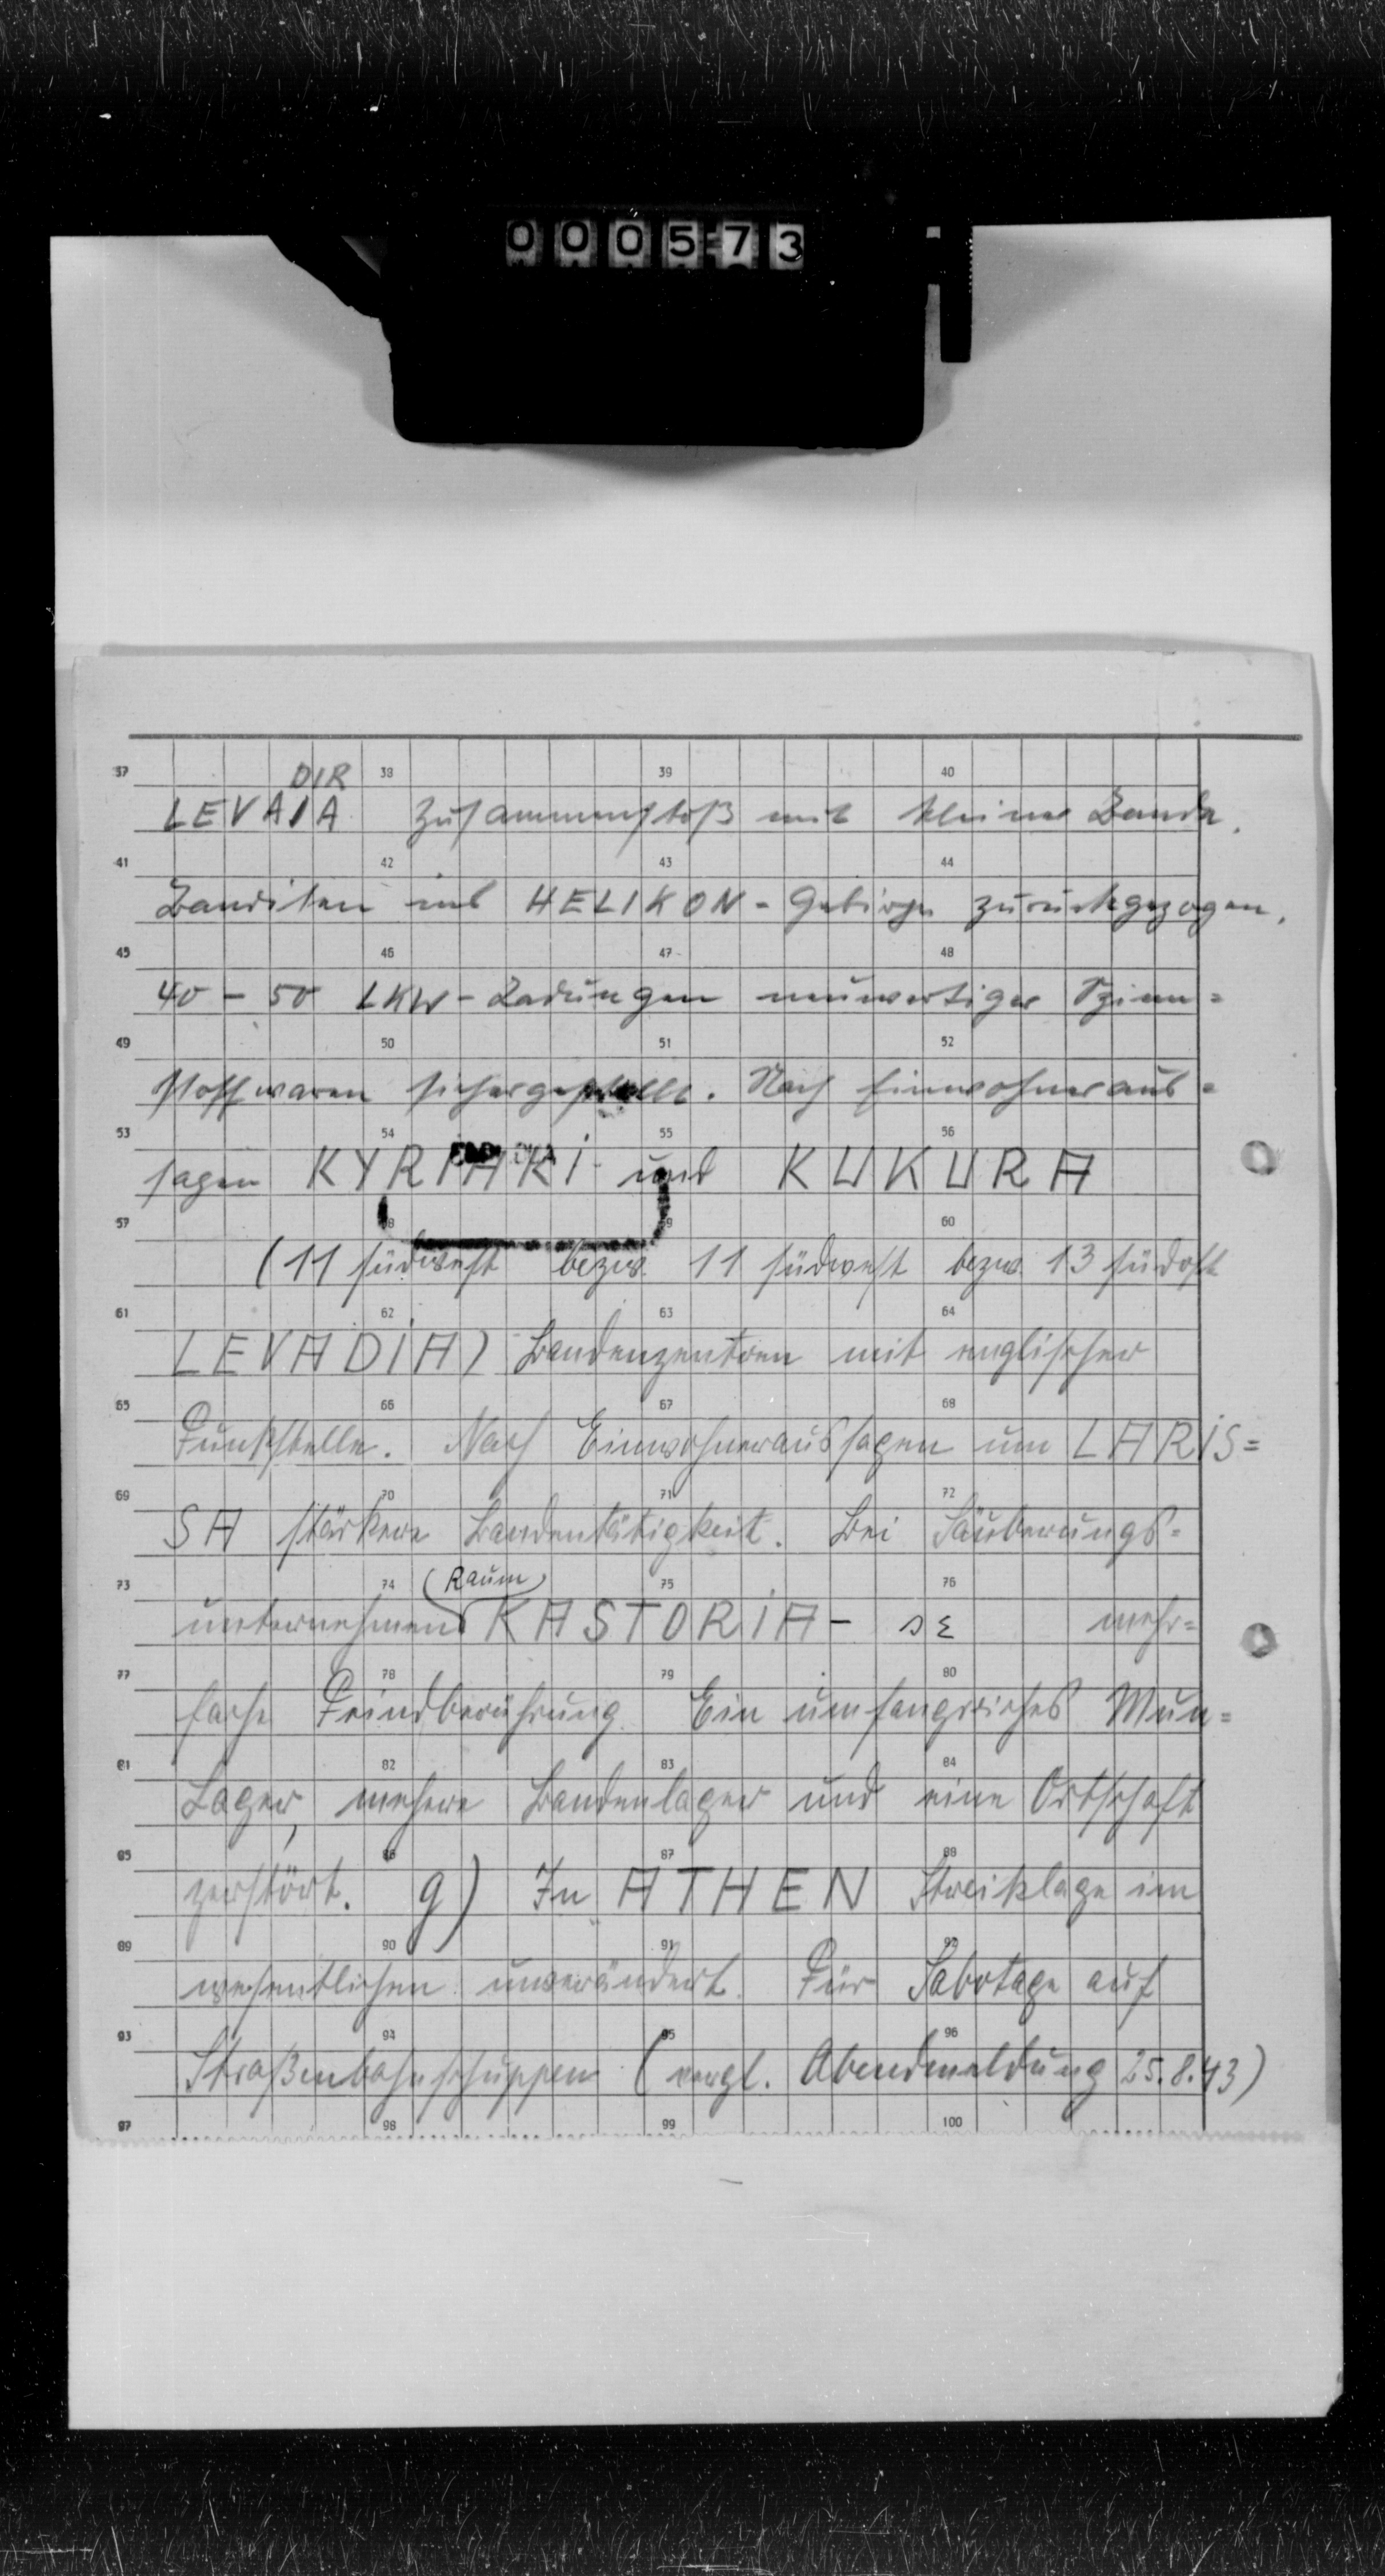 000573
37 38 39 40
DIR
LEVAIA Zusammenstoß mit kleiner Bande.
41 42 43 44
Banditen ins HELIKON-Gebirge zurückgezogen.
45 46 47 48
40 - 50 LKW-Ladungen neuwertiger Spinn=
49 50 51 52
stoffwaren sichergestellt. Nach Einwohneraus=
53 54 55 56
sagen KYRIAKI und KUKURA
57 58 59 60
(11 südwest bezw. 11 südwest bezw. 13 südost
61 62 63 64
LEVADIA) Bandenzentren mit englischer
65 66 67 68
Funkstelle. Nach Einwohneraussagen um LARIS=
69 70 71 72
SA stärkere Bandentätigkeit. Bei Säuberungs=
73 74 75 76
(Raum)
unternehmen KASTORIA- mehr=
77 78 79 80
fache Feindberührung. Ein umfangreiches Mun=
81 82 83 84
Lager, mehere Bandenlager und eine Ortschaft
85 86 87 88
zerstört. g) In ATHEN Streiklage im
89 90 91 92
wesentlichen unverändert. Für Sabotage auf
93 94 95 96
Straßenbahnschuppen (vergl. Abendmeldung 25.8.43)
97 98 99 100